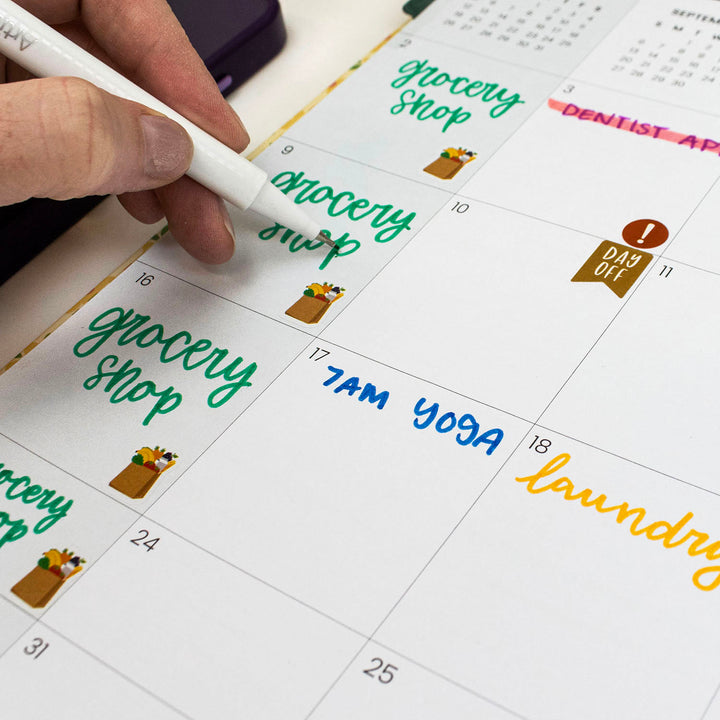 Artist
SEPTEMBER
2
grocery
shop
3
DENTIST AP
9
grocery
shop
10
!
DAY
OFF
11
16
grocery
shop
17
7AM YOGA
18
laundry
grocery
shop
24
25
31